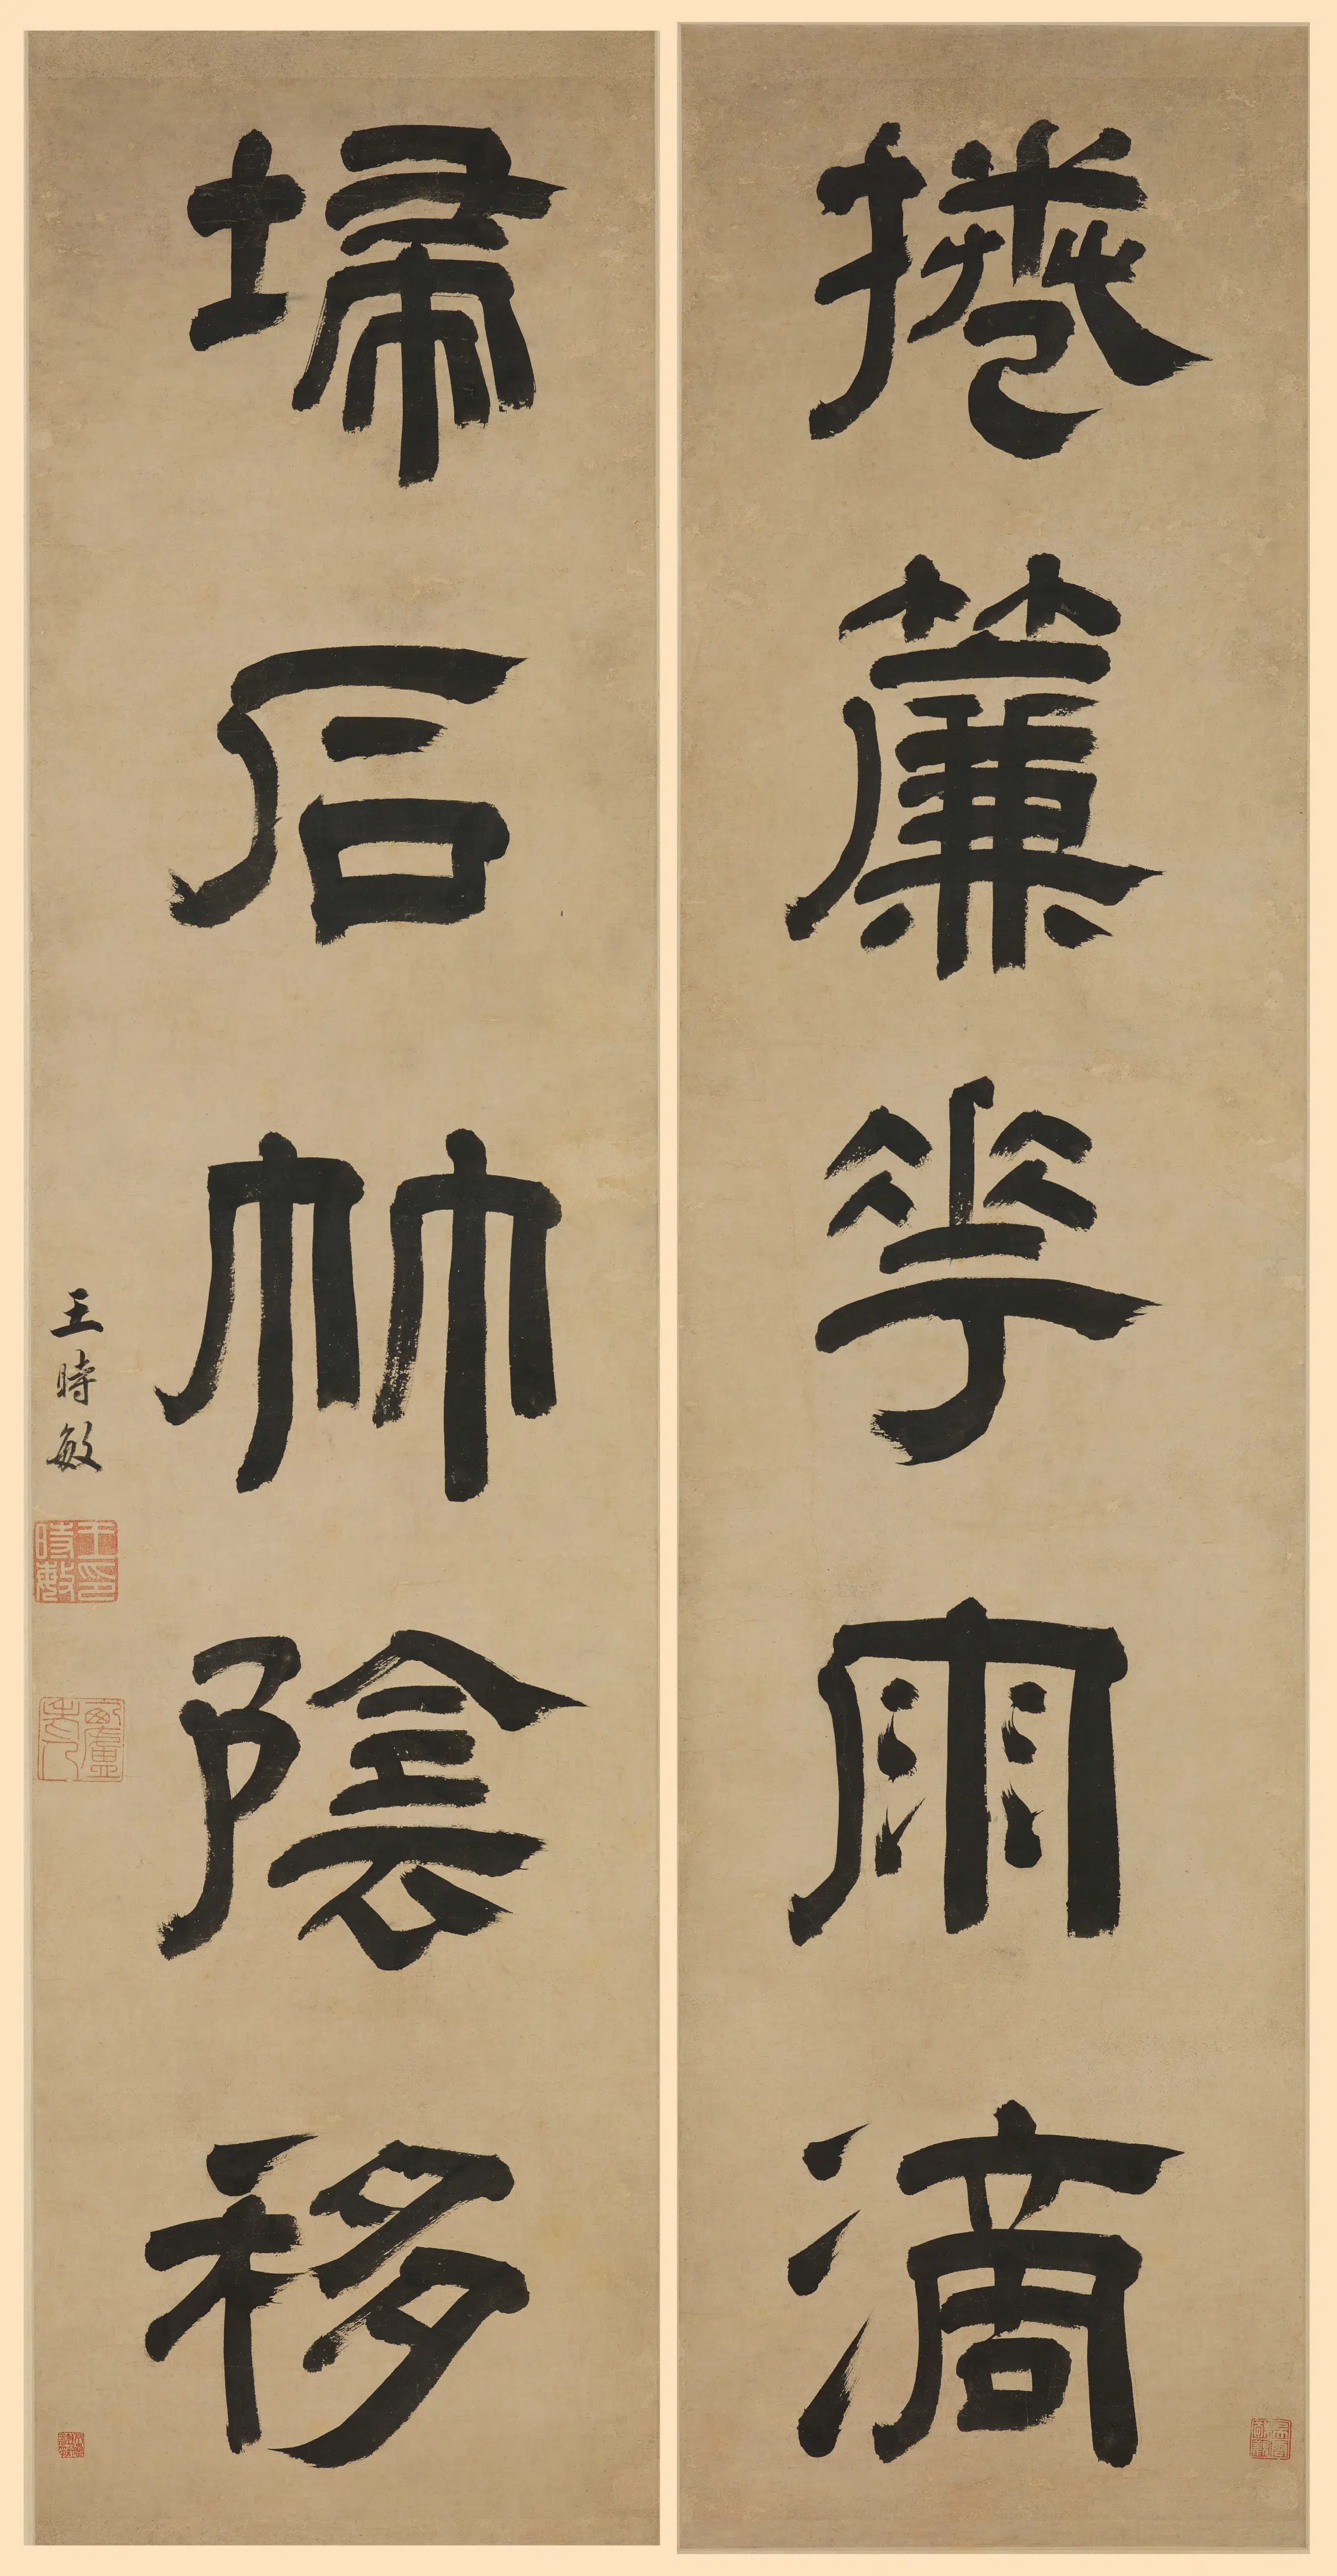 捲簾花雨滴
埽石林陰移
王時敏
王時敏印
西廬老人